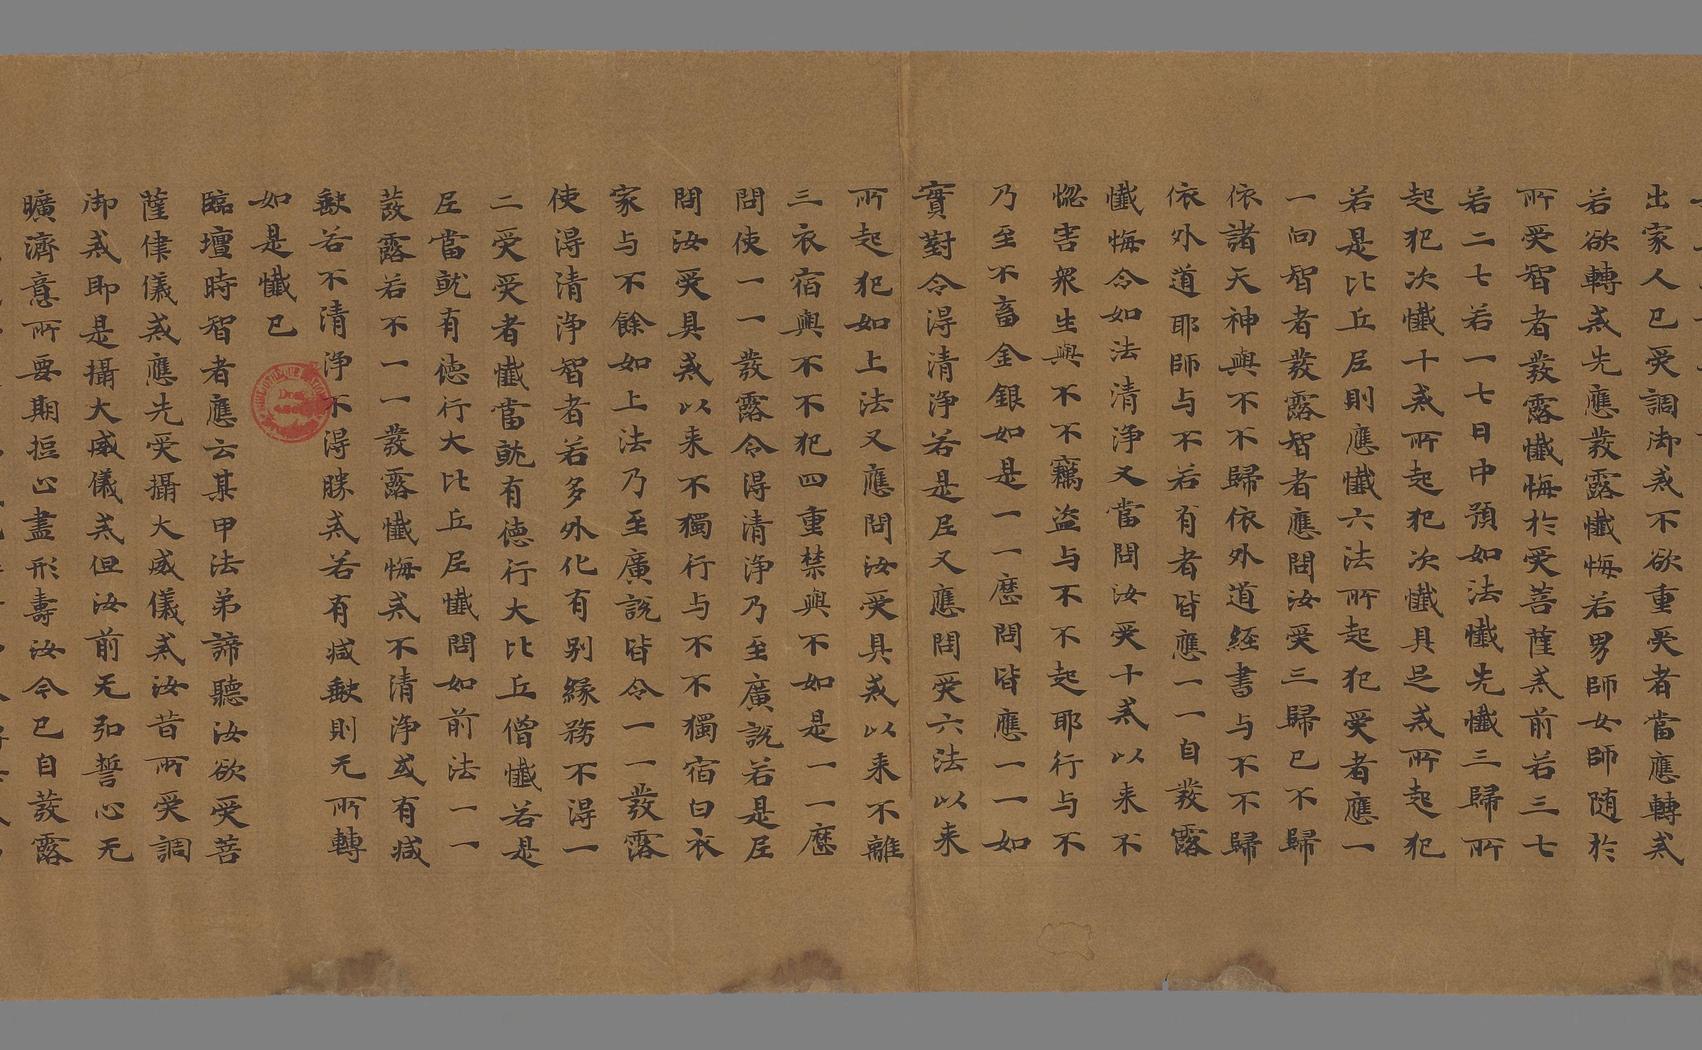 出家人已受調御戒不欲重受者當應轉戒
若欲轉戒先應發露懺悔若男師女師随於
所受智者發露懺悔於受菩薩戒前若三七
若二七若一七日中預如法懺先懺三歸所
起犯次懺十戒所起犯次懺具足戒所起犯
若是比丘尼則應懺六法所起犯受者應一
一向智者發露智者應問汝受三歸已不歸
依諸天神與不不歸依外道經書与不不歸
依外道耶師与不若有者皆應一一自發露
懺悔令如法清淨又當問汝受十戒以来不
惱害衆生與不不竊盗与不不起耶行与不
乃至不畜金銀如是一一歷問皆應一一如
實對令得清淨若是尼又應問受六法以来
所起犯如上法又應問汝受具戒以来不離
三衣宿與不不犯四重禁與不如是一一歷
問使一一發露令得清淨乃至廣說若是尼
問汝受具戒以来不獨行与不不獨宿白衣
家与不餘如上法乃至廣說皆令一一發露
使得清淨智者若多外化有別緣務不得一
二受受者懺當就有德行大比丘僧懺若是
尼當就有德行大比丘尼懺問如前法一一
發露若不一一發露懺悔戒不清淨或有減
缺若不清淨不得勝戒若有減缺則无所轉
如是懺已
臨壇時智者應云某甲法弟諦聽汝欲受菩
薩律儀戒應先受攝大威儀戒汝昔所受調
御戒即是攝大威儀戒但汝前无弘誓心无
曠濟意所要期拒止盡形壽汝今已自發露